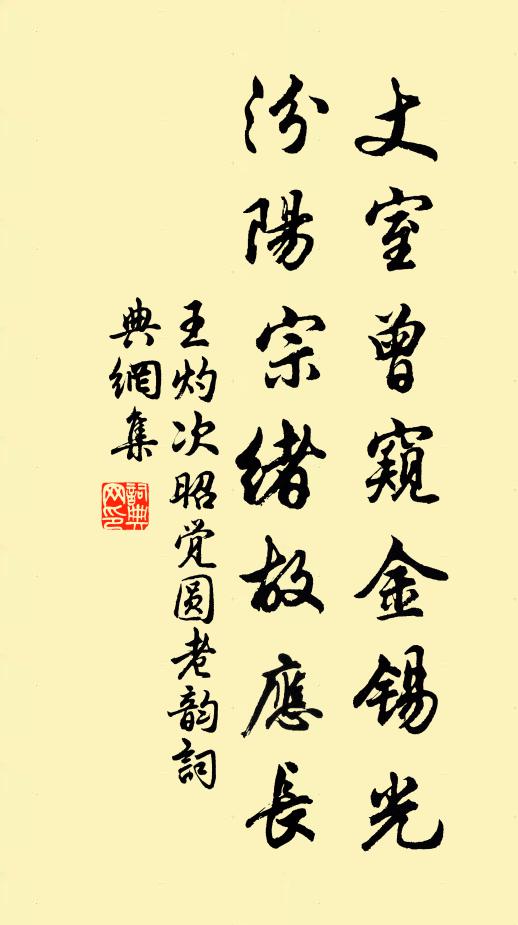 丈室曾窺金錫光
汾陽宗緒故應長
王灼次昭覚圓老韵詞
典網集
詞典
网印